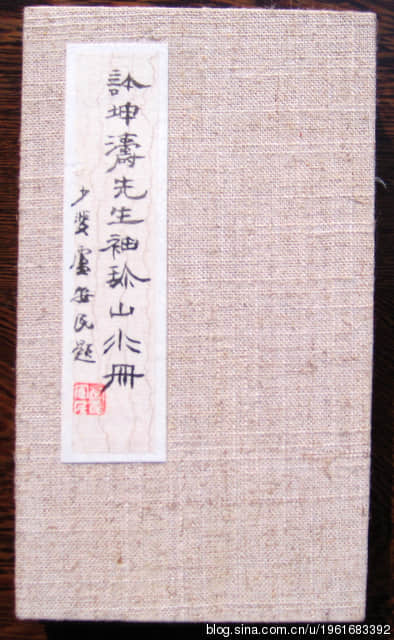 許坤濤先生袖珎山水冊
少斐盧安民題
blog.sina.com.cn/u/1961683392